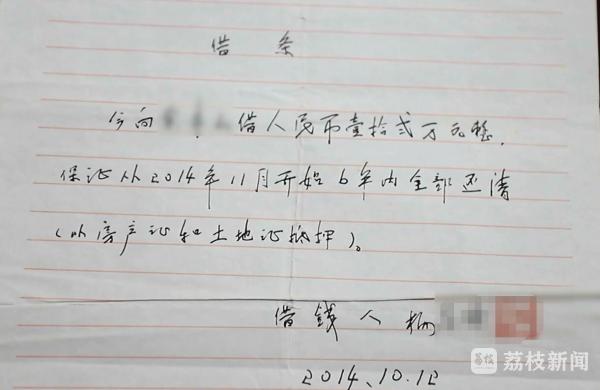 借条
今向 借人民币壹拾贰万元整.
保证从2014年11月开始6年内全部还清
(以房产证和土地证抵押)。
借钱人
2014.10.12
荔枝 荔枝新闻